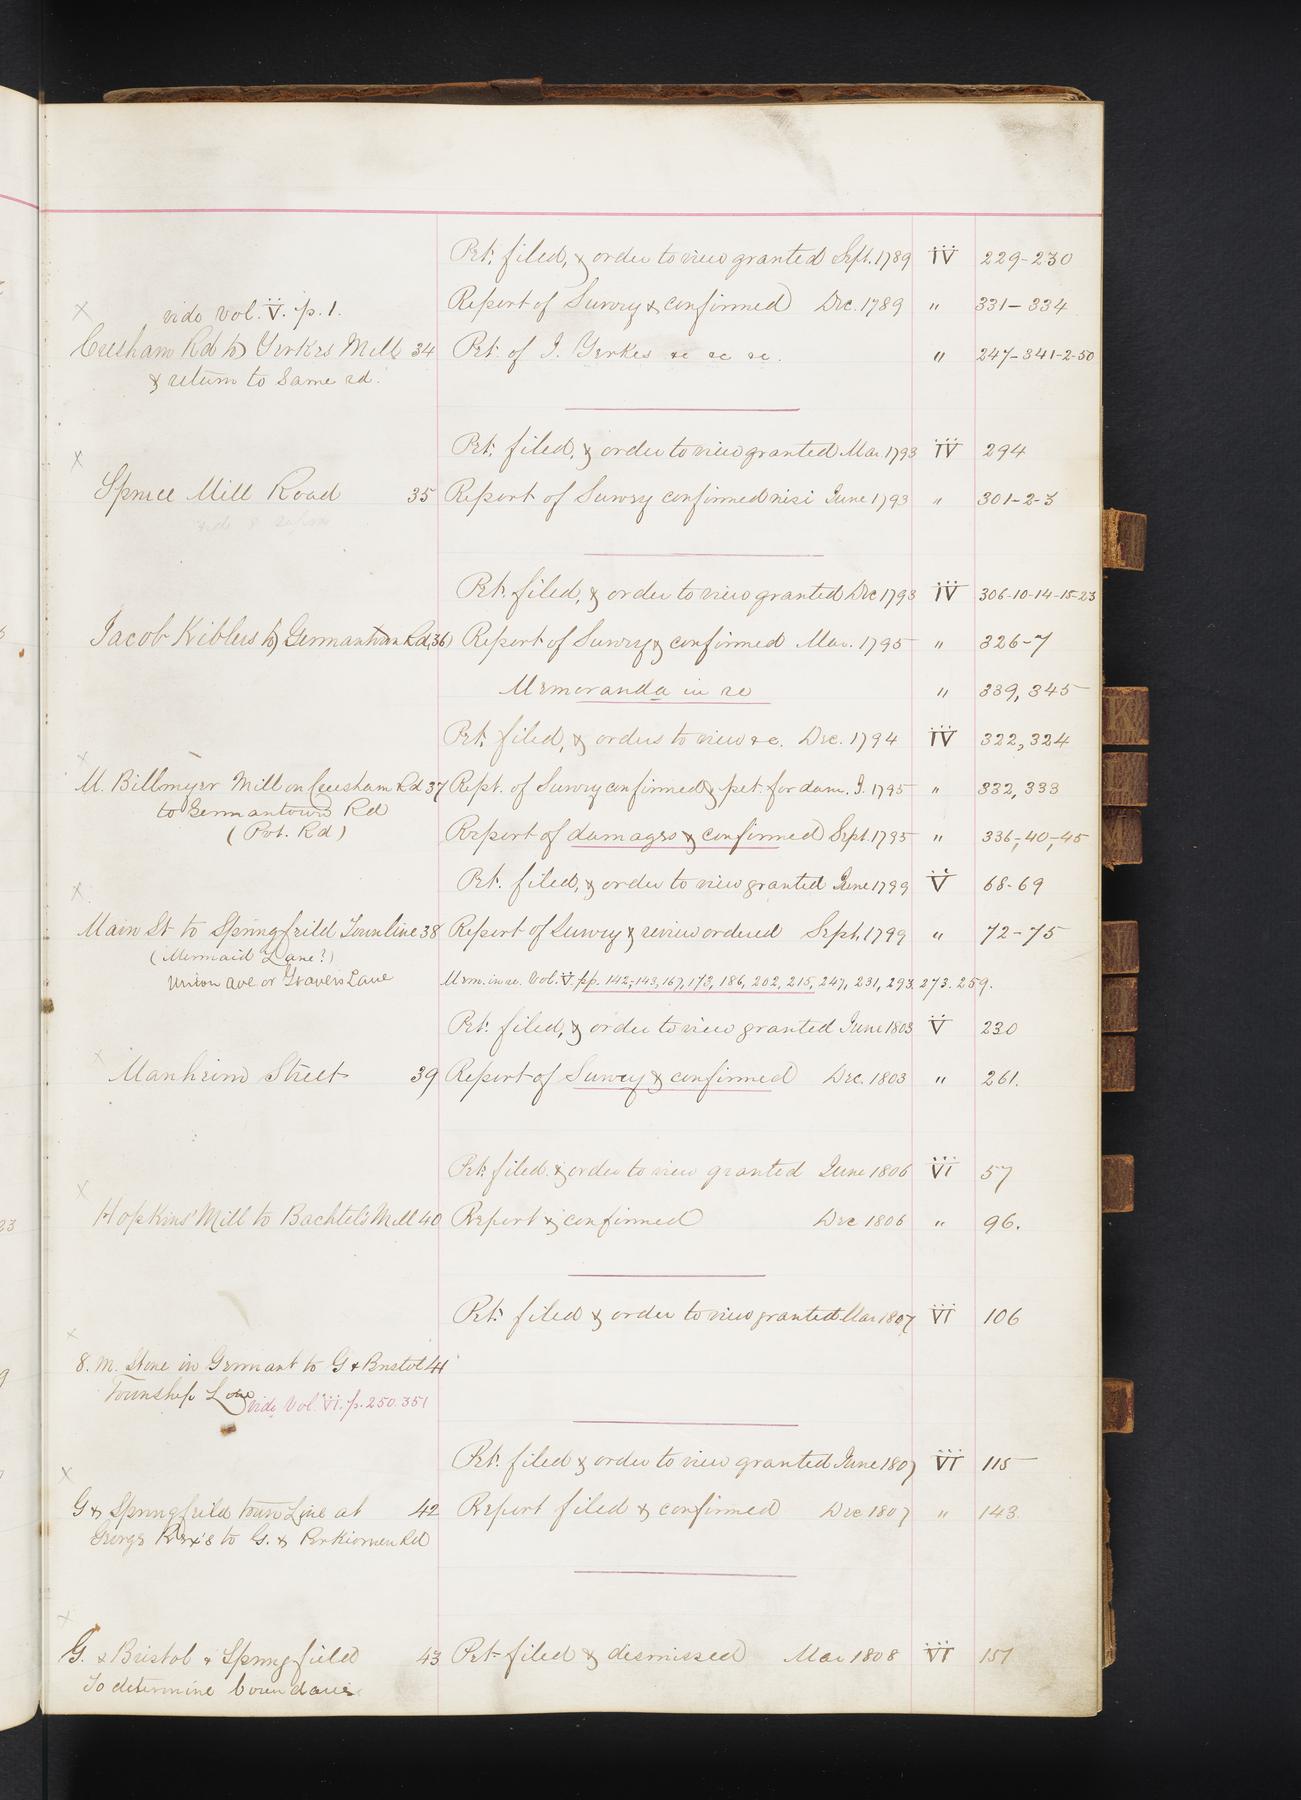 Pet. filed, & order to view granted Sept. 1789 IV 229-230
vide Vol. V. p. 1.
Report of Survey & confirmed Dec. 1789 " 331-334
Cresham Rd to Yerkes Mill 34 Pet. of J. Yerkes &c &c &c. " 247-341-2-50
& return to Same rd.
Pet. filed, & order to view granted Mar 1793 IV 294
Spruce Mill Road 35 Report of Survey confirmed nisi June 1793 " 301-2-3
Pet. filed, & order to view granted Dec 1793 IV 306-10-14-15-23
Jacob Kiblers to Germantown Rd, 36 Report of Survey & confirmed Mar. 1795 " 326-7
Memoranda in re " 339, 345
Pet. filed, & orders to view &c. Dec. 1794 IV 322, 324
M. Billmyer Mill on Creesham Rd 37 Rept. of Survey confirmed & pet. for dam. J. 1795 " 332, 333
to Germantown Rd
(Pvt. Rd) Report of damages & confirmed Sept. 1795 " 336-40-45
Pet. filed, & order to view granted June 1799 V 68-69
Main St to Springfield Town line 38 Report of Survey & review ordered Sept. 1799 " 72-75
(Mermaid Lane?)
Union ave or Gravers Lane Mem. in re. Vol. V pp. 142, 143, 167, 173, 186, 202, 215, 247, 231, 293, 273. 259.
Pet. filed, & order to view granted June 1803 V 230
Manheim Street 39 Report of Survey & confirmed Dec. 1803 " 261.
Pet. filed. & order to view granted June 1806 VI 57
Hopkins' Mill to Bachtel's Mill 40 Report & confirmed Dec 1806 " 96.
Pet. filed & order to view granted Mar 1807 VI 106
8. M. Stone in Germant to G & Bristol 41
Township Line vide Vol. VI. p. 250. 351
Pet. filed & order to view granted June 1807 VI 115
G & Springfield town Line at 42 Report filed & confirmed Dec 1807 " 143.
George Rex's to G. & Perkiomen Rd
G. & Bristol & Springfield 43 Pet filed & dismissed Mar 1808 VI 151
To determine boundaries